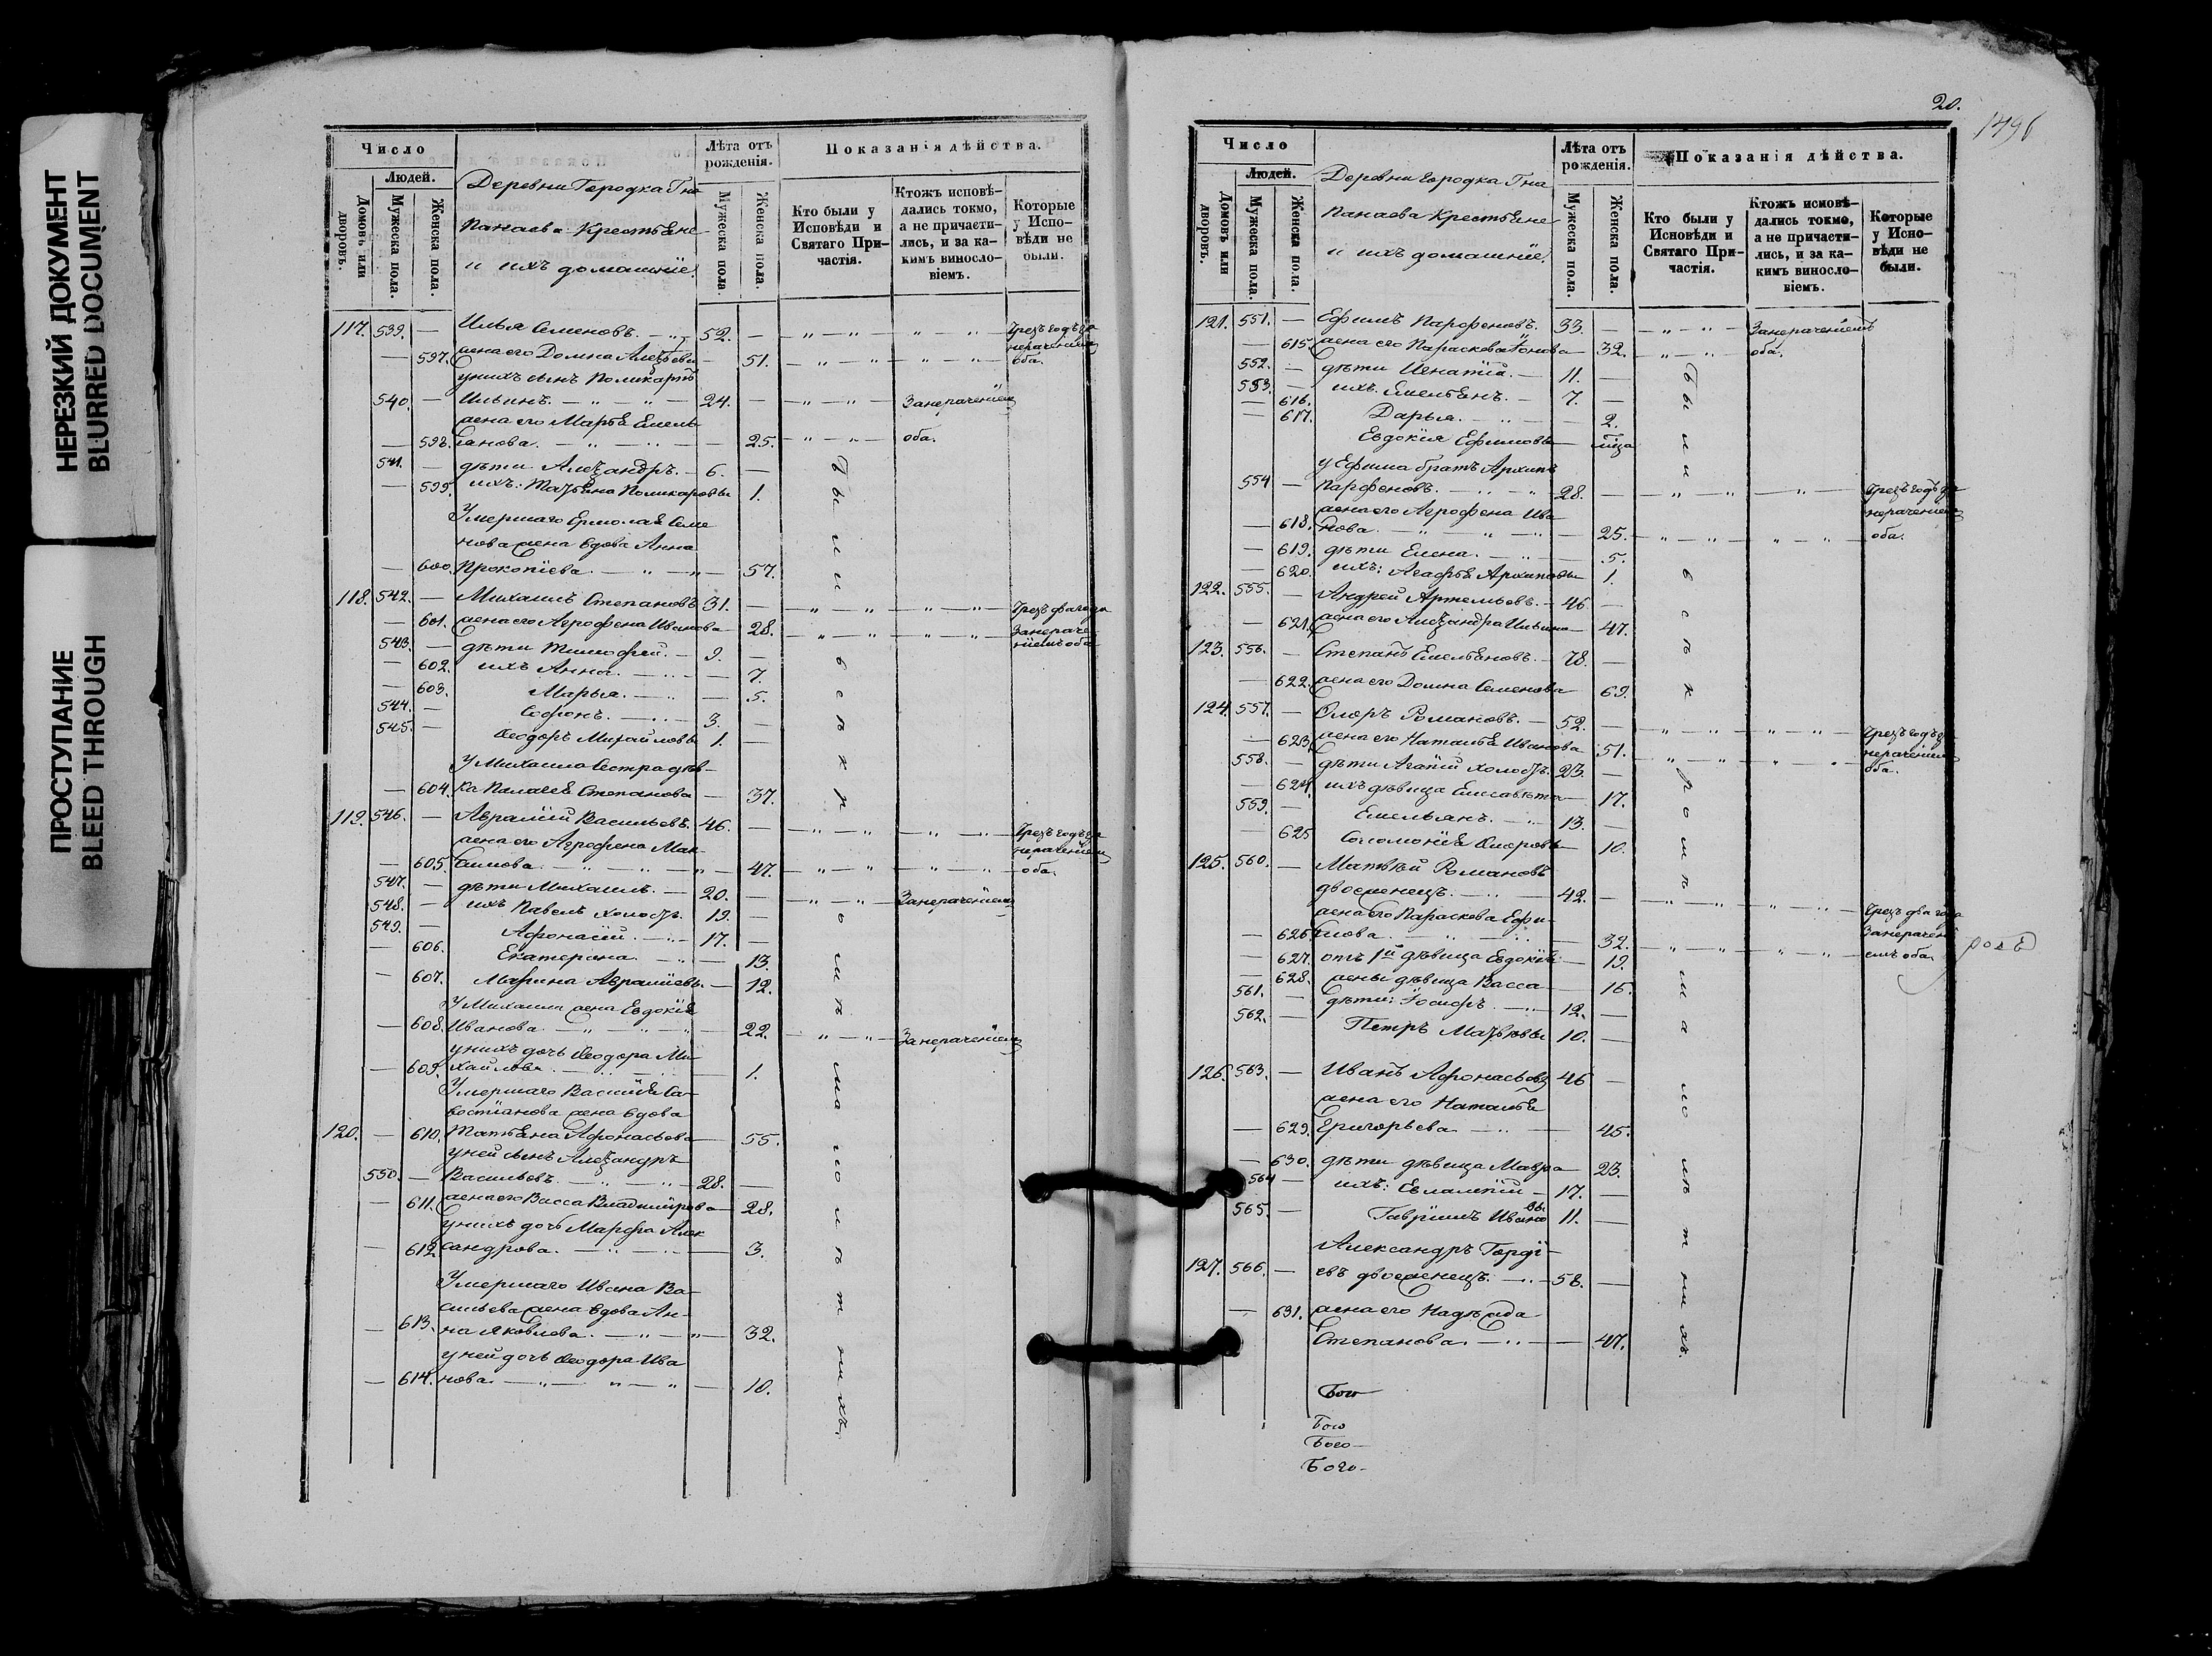 НЕРЕЗКИЙ ДОКУМЕНТ
BLURRED DOCUMENT
ПРОСТУПАНИЕ
BLEED THROUGH
Число
Людей.
Домовъ или дворовъ.
Мужеска пола.
Женска пола.
Деревни Городка Гна
Панаева Крестьяне
и ихъ домашніе.
Лѣта отъ рожденія.
Мужеска пола.
Женска пола.
Показанія дѣйства.
Кто были у Исповѣди и Святаго Причастія.
Ктожъ исповѣдались токмо, а не причастились, и за какимъ винословіемъ.
Которые у Исповѣди не были.
117. 539. — Илья Семеновъ. 52. — Чрезъ годъ за
— 597. жена его Домна 51. нераченіемъ оба.
у нихъ сынъ Поликарпъ
540. — Ильинъ. 24. — За нераченіемъ
жена его Марѳа Емель
— 598. янова. 25. оба.
541. — дѣти Алеѯандръ. 6. —
— 599. ихъ: Татьяна Поликарповы 1.
Умершаго Ермолая Семе
нова жена вдова Анна
— 600. Прокопіева. 57.
118. 542. — Михаилъ Степановъ 31. — Чрезъ два года
— 601. жена его Агрофена Иванова 28. За нераченіемъ оба
543. — дѣти Тимофей. 9. —
— 602. ихъ Анна. 7.
— 603. Марья. 5.
544. — Софонъ. 3. —
545. — Ѳеодоръ Михайловы 1. —
У Михаила сестра дѣв-
— 604. ка Палагея Степанова 37.
119. 546. — Аврамій Васильевъ. 46. — Чрезъ годъ за
жена его Агрофена Мак- нераченіемъ
— 605. симова. 47. оба.
547. — дѣти Михаилъ. 20. — За нераченіемъ
548. — ихъ Павелъ холостъ. 19. —
549. — Афонасій. 17. —
— 606. Екатерина. 13.
— 607. Марина Авраміевы. 12.
У Михаила жена Евдокія
— 608. Иванова. 22. За нераченіемъ
у нихъ дочь Ѳеодора Ми-
— 609. хайлова. 1.
Умершаго Василія Са-
востіанова жена вдова
120. — 610. Татьяна Афонасьева 55.
у ней сынъ Алеѯандръ
550. — Васильевъ. 28. —
— 611. жена его Васса Владимірова 28.
у нихъ дочь Марфа Алек
— 612. сандрова. 3.
Умершаго Ивана Ва-
сильева жена вдова Ан-
— 613. на Яковлева. 32.
у ней дочь Ѳеодора Ива
— 614. нова. 10.
Были всѣ кромѣ малолѣтнихъ.
20.
1496
Число
Людей.
Домовъ или дворовъ.
Мужеска пола.
Женска пола.
Деревни Городка Гна
Панаева Крестьяне
и ихъ домашніе.
Лѣта отъ рожденія.
Мужеска пола.
Женска пола.
Показанія дѣйства.
Кто были у Исповѣди и Святаго Причастія.
Ктожъ исповѣдались токмо, а не причастились, и за какимъ винословіемъ.
Которые у Исповѣди не были.
121. 551. — Ефимъ Парфеновъ. 33. — За нераченіемъ
— 615. жена его Параскева 32. оба.
552. — дѣти Игнатій. 11. —
553. — ихъ. Емельянъ. 7. —
— 616. Дарья. 2.
— 617. Евдокія Ефимовы
у Ефима братъ Архипъ
554 — Парфеновъ. 28. — Чрезъ годъ за
жена его Агрофена Ива нераченіемъ
— 618. нова. 25. оба.
— 619. дѣти Елена. 5.
— 620. ихъ: Агафья Архиповы 1.
122. 555. — Андрей Артемьевъ. 46. —
— 621. жена его Алеѯандра Ильина 47.
123. 556. — Степанъ Емельяновъ. 78. —
— 622. жена его Домна Семенова 69.
124. 557. — Флоръ Романовъ. 52. — Чрезъ годъ за
— 623. жена его Наталья Иванова 51. нераченіемъ
558. — дѣти Агапій холостъ. 23. — оба.
— 624. ихъ дѣвица Елисавета 17.
559. — Емельянъ. 13. —
— 625 Соломонія Флоровы 10.
125. 560. — Матвѣй Романовъ
двоеженецъ. 42. — Чрезъ два года
жена его Параскева Ефи- За нерачені
— 626. мова. 32. емъ оба.
— 627. отъ 1й дѣвица Евдокія 19.
— 628. жены дѣвица Васса 16.
561. — дѣти: Іосифъ. 12. —
562. — Петръ Матвѣевы 10. —
126. 563. — Иванъ Афонасьевъ 46 —
жена его Наталья
— 629. Григорьева. 45.
— 630. дѣти дѣвица Мавра 23.
564 — ихъ: Евлампій 17. —
565. — Гавріилъ Ивановы 11. —
Александръ Горді-
127. 566. — евъ двоеженецъ. 58. —
— 631. жена его Надежда
Степанова. 47.
Были всѣ кромѣ малолѣтнихъ.
Бого
Бого
Бого-
Бого-